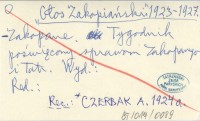 „Głos Zakopiański" 1923-1927.
Zakopane. Tygodnik
poświęcony sprawom Zakopanego
i Tatr. Wyd.:
Red.:
Rec.: *CZERBAK A. 1924a.